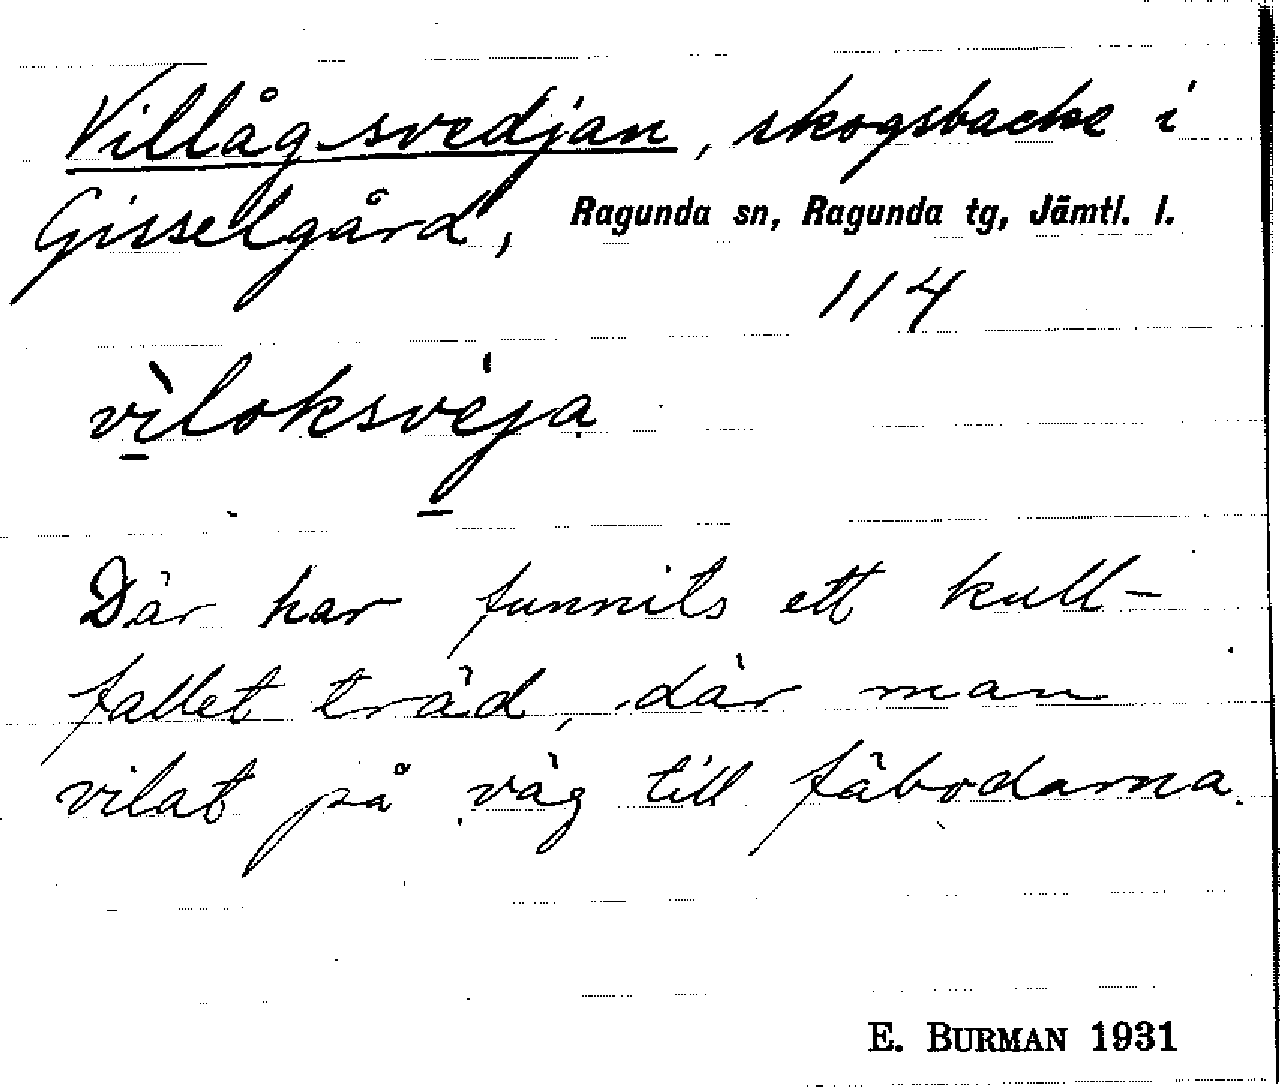 Villågsvedjan, skogsbacke i
Gisselgård, Ragunda sn, Ragunda tg, Jämtl. l.
114
vìloksvéja
Där har funnits ett kull-
fallet träd, där man
vilat på väg till fäbodarna.
E. BURMAN 1931